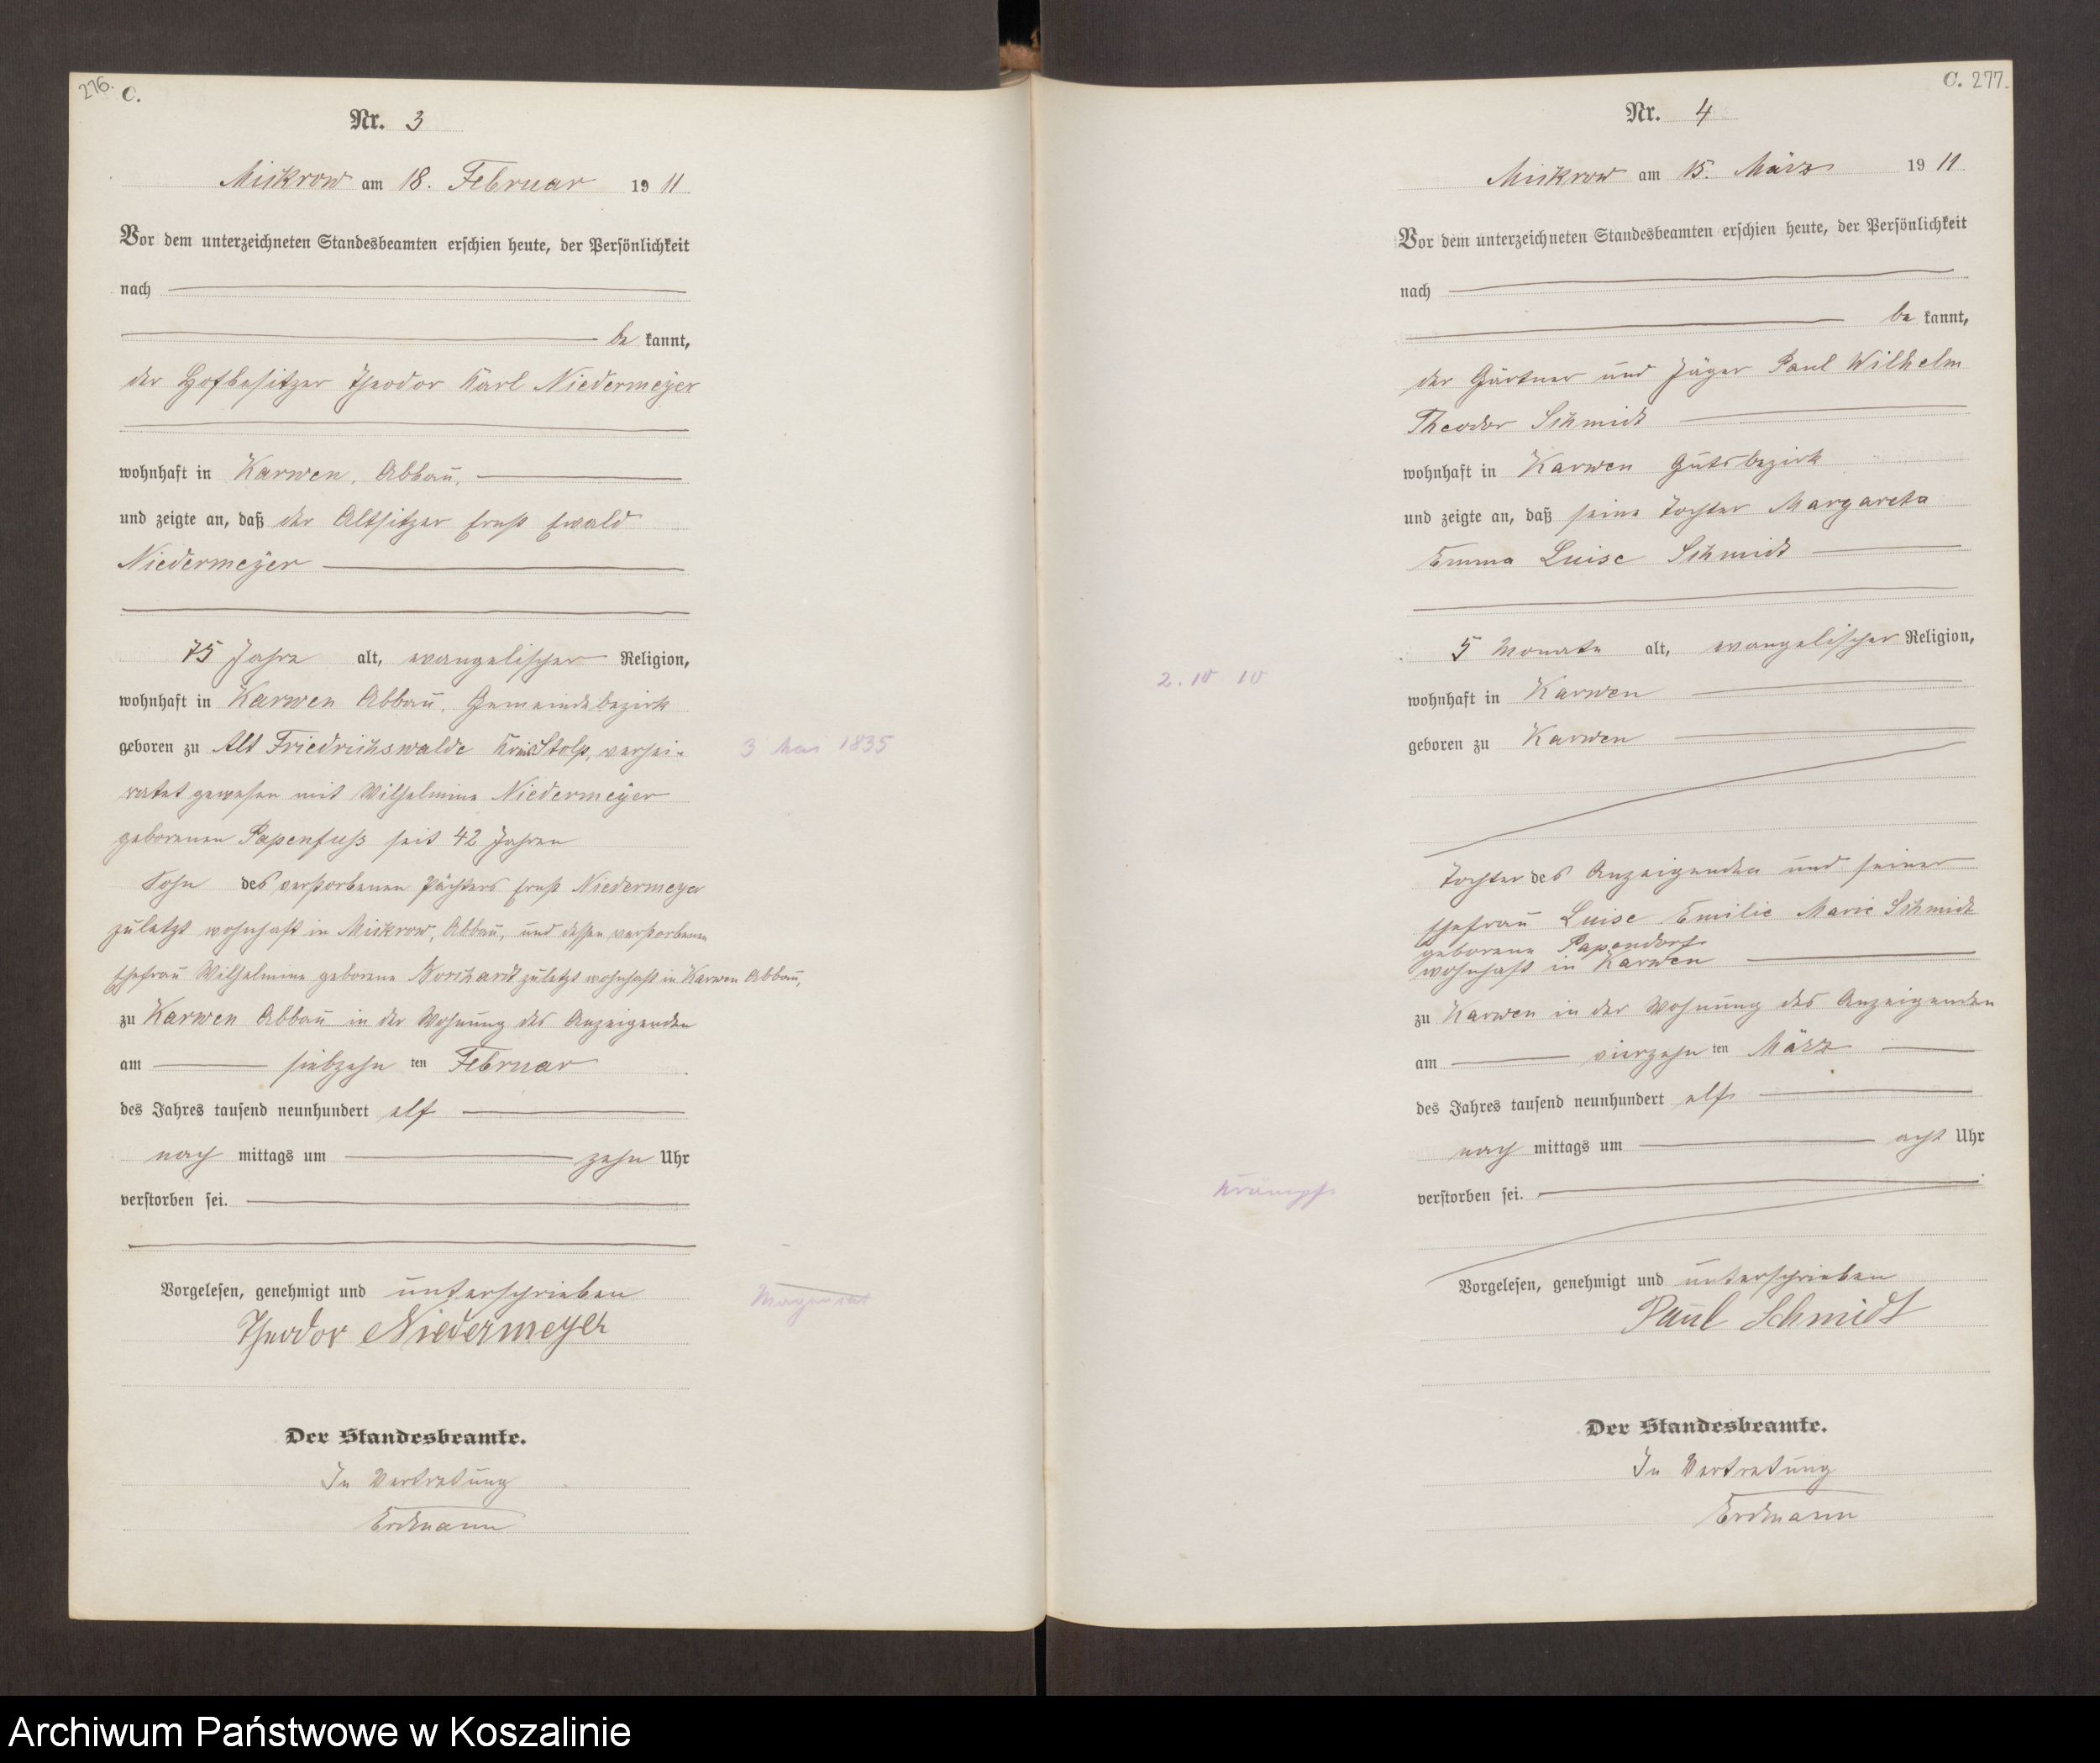 276.
C.
Nr. 3
Mickrow am 18. Februar 1911
Vor dem unterzeichneten Standesbeamten erschien heute, der Persönlichkeit
nach
be kannt,
der Hofbesitzer Theodor Karl Niedermeyer
wohnhaft in Karwen, Abbau,
und zeigte an, daß der Altsitzer Ernst Ewald
Niedermeyer
75 Jahre alt, evangelischer Religion,
wohnhaft in Karwen Abbau, Gemeindebezirk
geboren zu Alt Friedrichswalde Kreis Stolp, verhei-
3 Mai 1835
ratet gewesen mit Wilhelmine Niedermeyer
geborenen Papenfuß seit 42 Jahren
Sohn des verstorbenen Pächters Ernst Niedermeyer
zuletzt wohnhaft in Mickrow, Abbau, und dessen verstorbenen
Ehefrau Wilhelmine geborene Borchardt zuletzt wohnhaft in Karwen Abbau,
zu Karwen Abbau in der Wohnung des Anzeigenden
am siebzehn ten Februar
des Jahres tausend neunhundert elf
nach mittags um zehn Uhr
verstorben sei.
Vorgelesen, genehmigt und unterschrieben
Theodor Niedermeyer
Der Standesbeamte.
In Vertretung
Erdmann
C. 277.
Nr. 4
Mickrow am 15. März 1911
Vor dem unterzeichneten Standesbeamten erschien heute, der Persönlichkeit
nach
be kannt,
der Gärtner und Jäger Paul Wilhelm
Theodor Schmidt
wohnhaft in Karwen Gutsbezirk
und zeigte an, daß seine Tochter Margareta
Emma Luise Schmidt
5 Monate alt, evangelischer Religion,
2. 10 10
wohnhaft in Karwen
geboren zu Karwen
Tochter des Anzeigenden und seiner
Ehefrau Luise Emilie Marie Schmidt
geborene Papendorf
wohnhaft in Karwen
zu Karwen in der Wohnung des Anzeigenden
am vierzehn ten März
des Jahres tausend neunhundert elf
nach mittags um acht Uhr
Krämpfe
verstorben sei.
Vorgelesen, genehmigt und unterschrieben
Paul Schmidt
Der Standesbeamte.
In Vertretung
Erdmann
Archiwum Państwowe w Koszalinie